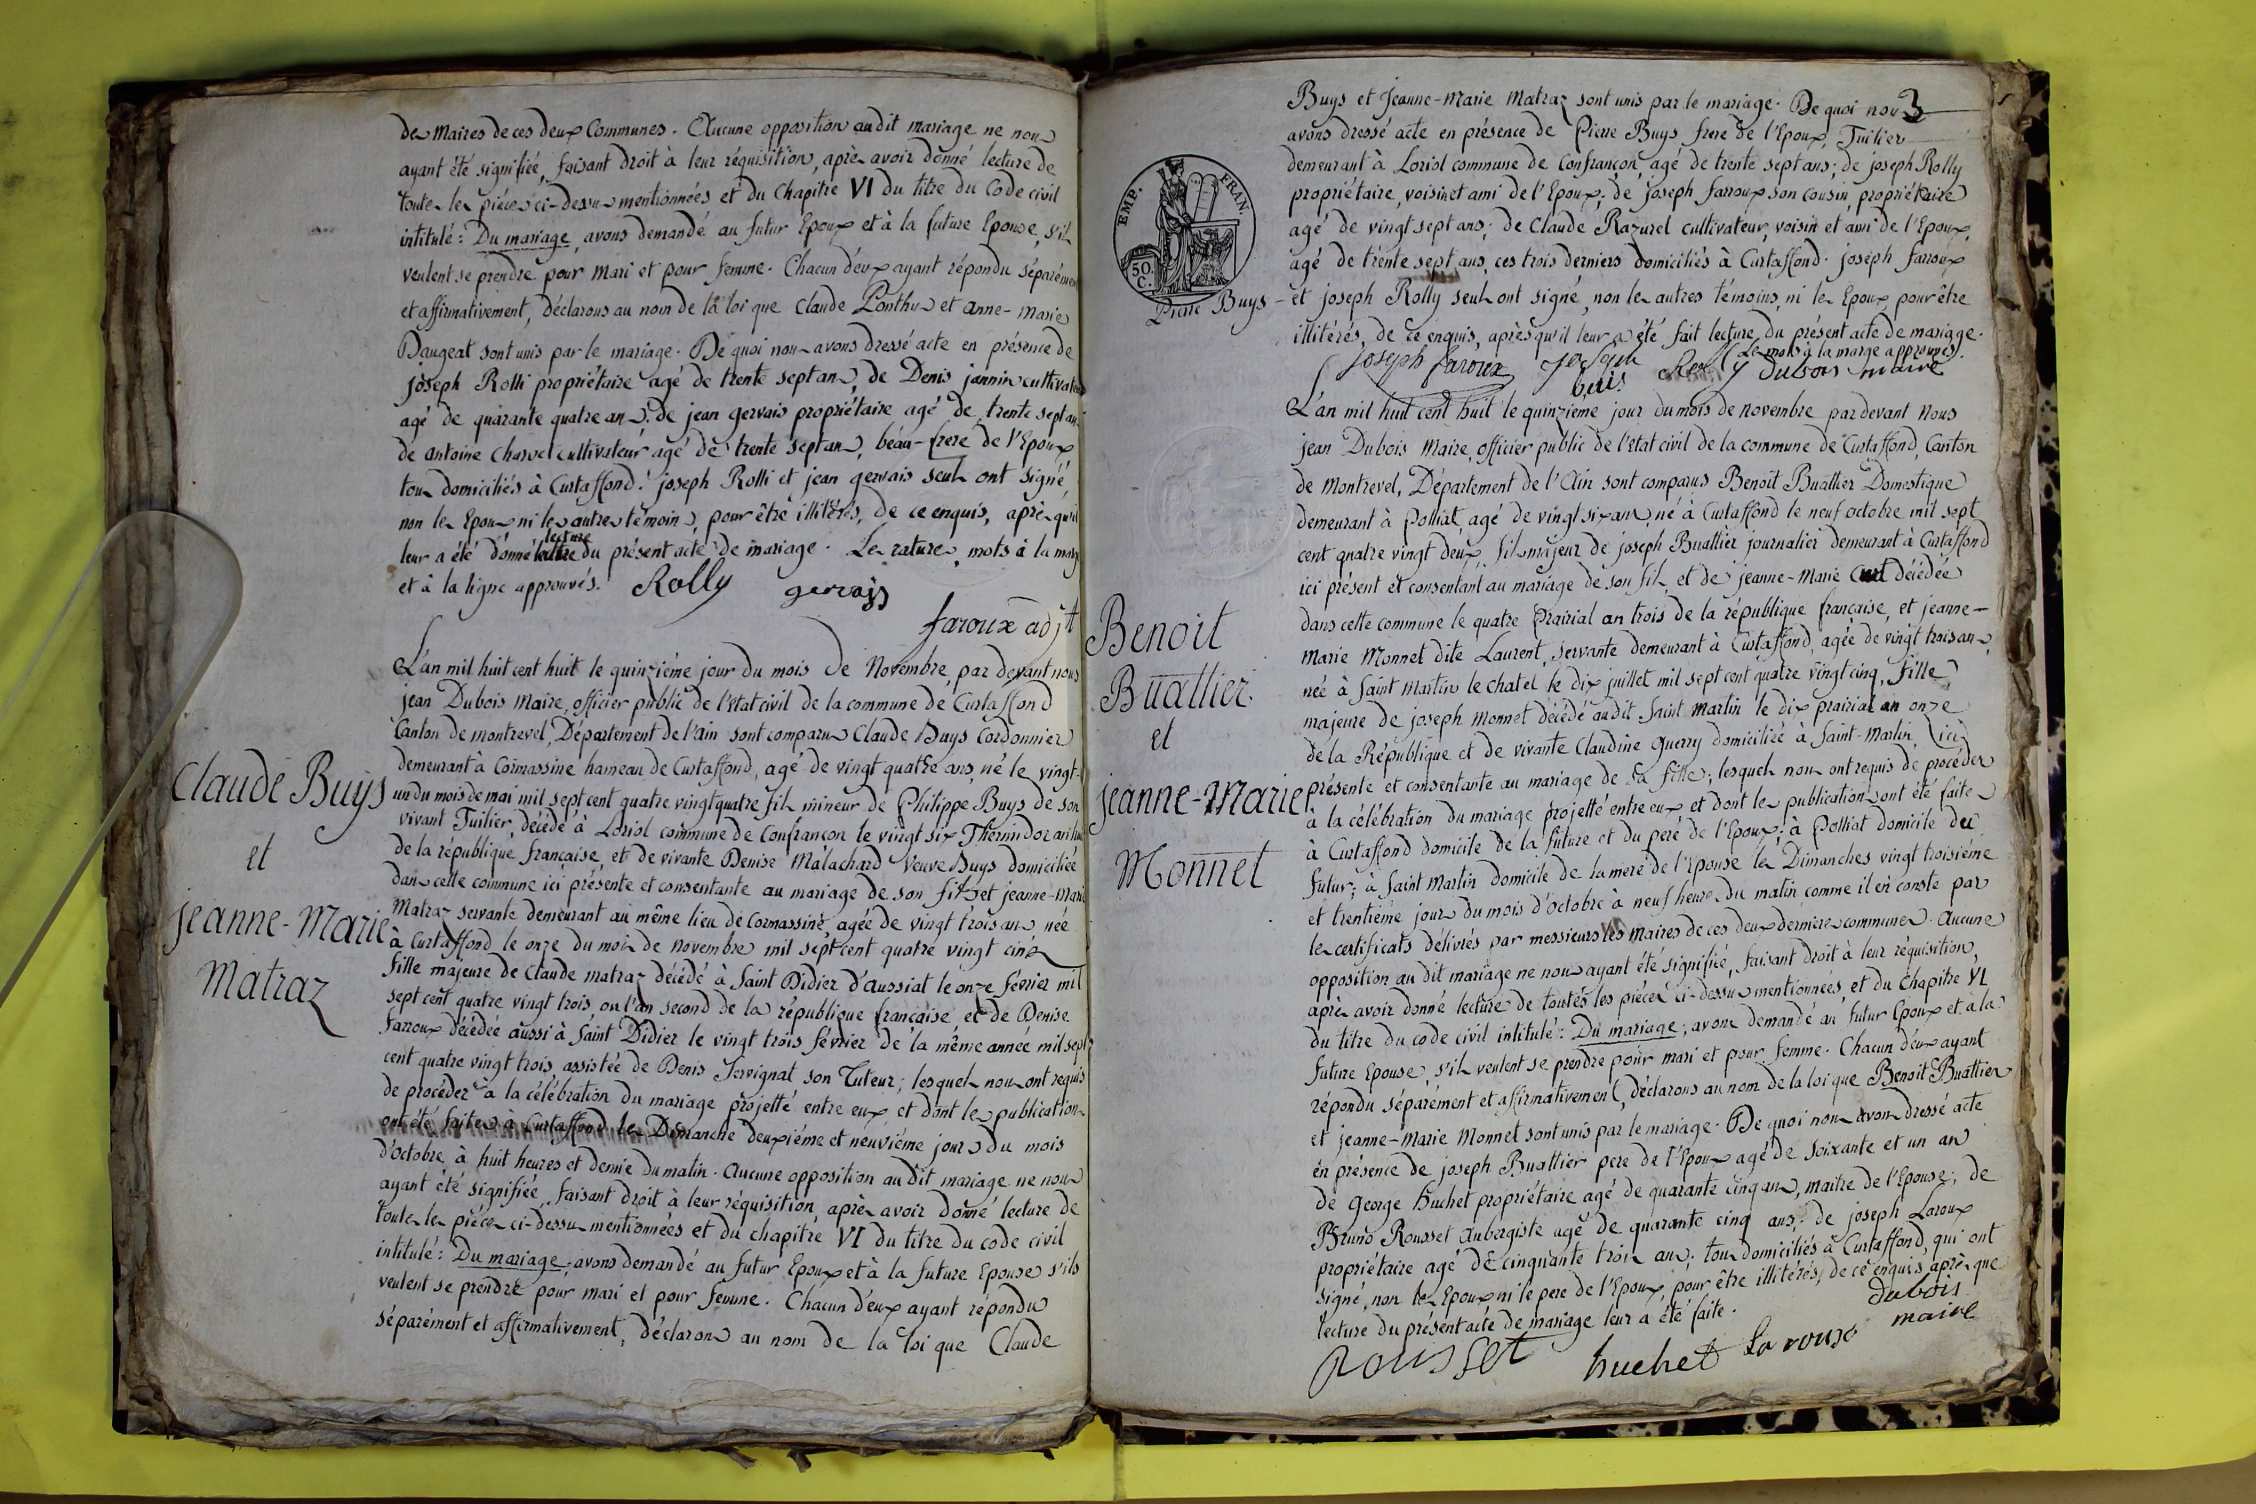 de Maires de ces deux Communes. Aucune opposition audit mariage ne nous
ayant été signifiée, faisant droit à leur réquisition, après avoir donné lecture de
toutes les pièces ci-dessus mentionnées et du Chapitre VI du titre du Code civil
intitulé : Du mariage, avons demandé au futur Epoux et à la future Epouse, s'ils
veulent se prendre pour Mari et pour femme. Chacun d'eux ayant répondu séparément
et affirmativement, déclarons au nom de la loi que Claude Ponthus et anne-Marie
Daugeat sont unis par le mariage. De quoi nous avons dressé acte en présence de
joseph Rolli propriétaire agé de trente sept ans, de Denis jannin cultivateur
agé de quarante quatre ans, de jean gervais propriétaire agé de trente sept ans
de antoine Charvet cultivateur agé de trente sept ans, beau-frere de l'Epoux
tous domiciliés à Curtaffond. joseph Rolli et jean gervais seuls ont signé,
non les Epoux ni les autres témoins, pour être illitérés, de ce enquis, après qu'il
lecture
leur a été donné du présent acte de mariage. Les ratures, mots à la marge
et à la ligne approuvés. Rolly gervais
faroux adjt
Claude Buys
et
jeanne-Marie
Matraz
L'an mil huit cent huit le quinzième jour du mois de Novembre, par devant nous
jean Dubois Maire, officier public de l'état civil de la commune de Curtaffond
Canton de montrevel, Département de l'ain sont comparus Claude Buys Cordonnier
demeurant à Cormassine hameau de Curtaffond, agé de vingt quatre ans, né le vingt-
un du mois de mai mil sept cent quatre vingt quatre fils mineur de Philippe Buys de son
vivant Tuilier, décédé à Loriol commune de Confrançon le vingt six Thermidor an
de la république française, et de vivante Denise Malachard Veuve Buys domiciliée
dans cette commune ici présente et consentante au mariage de son fils, et jeanne-Marie
Matraz servante demeurant au même lieu de Cormassine, agée de vingt trois ans, née
à Curtaffond le onze du mois de novembre mil sept cent quatre vingt cinq
fille majeure de Claude matraz décédé à Saint Didier d'aussiat le onze fevrier mil
sept cent quatre vingt trois, ou l'an second de la république française et de Denise
farroux décédée aussi à Saint Didier le vingt trois février de la même année mil sept
cent quatre vingt trois, assistée de Denis Servignat son Tuteur ; lesquels nous ont requis
de procéder à la célébration du mariage projetté entre eux et dont les publications
ont été faites à Curtaffond les Dimanche deuxième et neuvième jours du mois
d'octobre à huit heures et demie du matin. Aucune opposition au dit mariage ne nous
ayant été signifiée, faisant droit à leur réquisition, après avoir donné lecture de
toutes les pièces ci-dessus mentionnées et du chapitre VI du titre du code civil
intitulé : Du mariage, avons demandé au futur Epoux et à la future Epouse s'ils
veulent se prendre pour mari et pour femme. Chacun d'eux ayant répondu
séparément et affirmativement, déclarons au nom de la loi que Claude
3
Buys et Jeanne-Marie Matraz sont unis par le mariage. De quoi nous
avons dressé acte en présence de Pierre Buys frere de l'Epoux, Tuilier
demeurant à Loriol commune de Confrançon, agé de trente sept ans ; de joseph Rolly
propriétaire, voisin et ami de l'Epoux ; de joseph farroux son cousin, propriétaire
agé de vingt sept ans ; de Claude Razurel cultivateur, voisin et ami de l'Epoux,
agé de trente sept ans, ces trois derniers domiciliés à Curtaffond. joseph farroux
EMP. FRAN.
50.
C.
Pierre Buys
et joseph Rolly seuls ont signé, non les autres témoins, ni les Epoux, pour être
illitérés, de ce enquis, après qu'il leur a été fait lecture du présent acte de mariage.
Les mots à la marge approuvés.
joseph faroux joseph Rolly Dubois maire
buis
L'an mil huit cent huit le quinzieme jour du mois de novembre par devant Nous
jean Dubois Maire, officier public de l'état civil de la commune de Curtaffond, Canton
de Montrevel, Département de l'Ain sont comparus Benoit Buattier Domestique
demeurant à Polliat, agé de vingt six ans, né à Curtaffond le neuf octobre mil sept
cent quatre vingt deux, fils majeur de joseph Buattier journalier demeurant à Curtaffond
ici présent et consentant au mariage de son fils, et de jeanne-Marie décédée
dans cette commune le quatre Prairial an trois de la république française, et jeanne-
Marie Monnet dite Laurent, servante demeurant à Curtaffond, agée de vingt trois ans,
née à Saint Martin le chatel le dix juillet mil sept cent quatre vingt cinq, fille
majeure de joseph Monnet décédé audit Saint Martin le dix prairial an onze
de la République et de vivante Claudine Guerry domiciliée à Saint-Martin, ici
présente et consentante au mariage de sa fille ; lesquels nous ont requis de procéder
à la célébration du mariage projetté entre eux et dont les publications ont été faites
à Curtaffond domicile de la future et du pere de l'Epoux ; à Polliat domicile du
futur ; à Saint Martin domicile de la mere de l'Epouse les Dimanches vingt troisième
et trentième jours du mois d'octobre à neuf heures du matin, comme il en conste par
les certificats délivrés par messieurs les maires de ces deux dernieres communes. Aucune
opposition au dit mariage ne nous ayant été signifiée, faisant droit à leur réquisition,
après avoir donné lecture de toutes les pièces ci-dessus mentionnées, et du Chapitre VI
du titre du code civil intitulé : Du mariage, avons demandé au futur Epoux et à la
future Epouse, s'ils veulent se prendre pour mari et pour femme. Chacun d'eux ayant
répondu séparément et affirmativement, déclarons au nom de la loi que Benoit Buattier
et jeanne-Marie Monnet sont unis par le mariage. De quoi nous avons dressé acte
en présence de joseph Buattier pere de l'Epoux agé de Soixante et un an
de George huchet propriétaire agé de quarante cinq ans, maitre de l'Epouse ; de
Bruno Rousset Aubergiste agé de quarante cinq ans ; de joseph Laroux
propriétaire agé de cinquante trois ans ; tous domiciliés à Curtaffond, qui ont
signé, non les Epoux ni le pere de l'Epoux, pour être illitérés, de ce enquis, après que
lecture du présent acte de mariage leur a été faite.
Rousset huchet Laroux dubois
maire
Benoit
Buattier
et
jeanne-Marie
Monnet